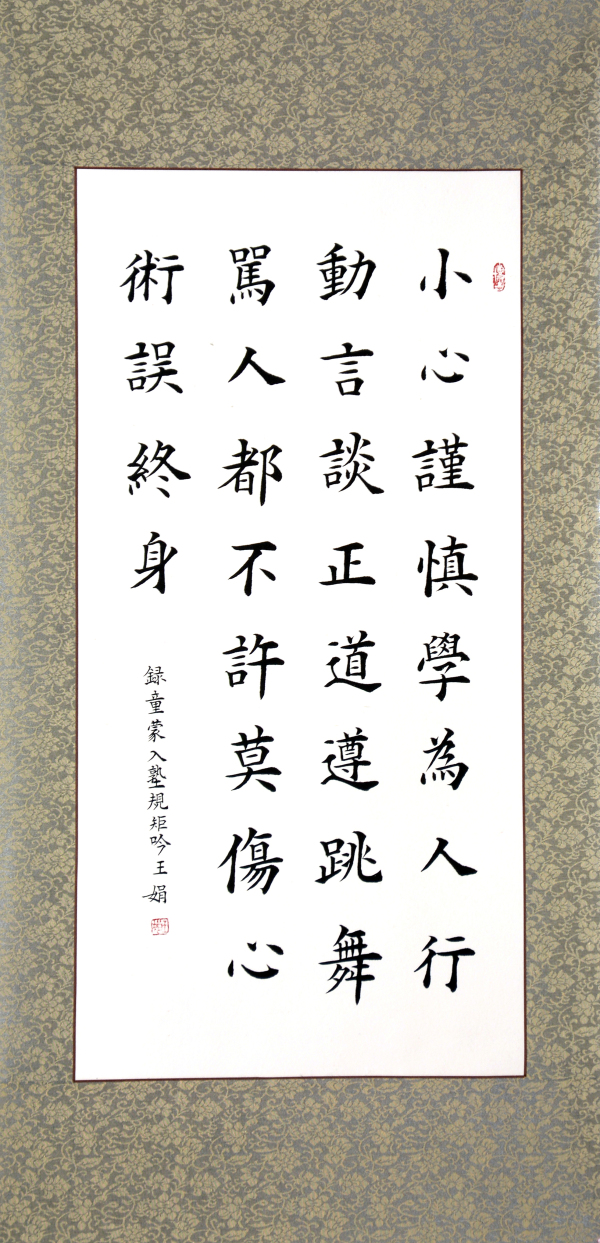 小心謹慎學為人行
動言談正道遵跳舞
駡人都不許莫傷心
術誤終身
録童蒙入塾規矩吟王娟